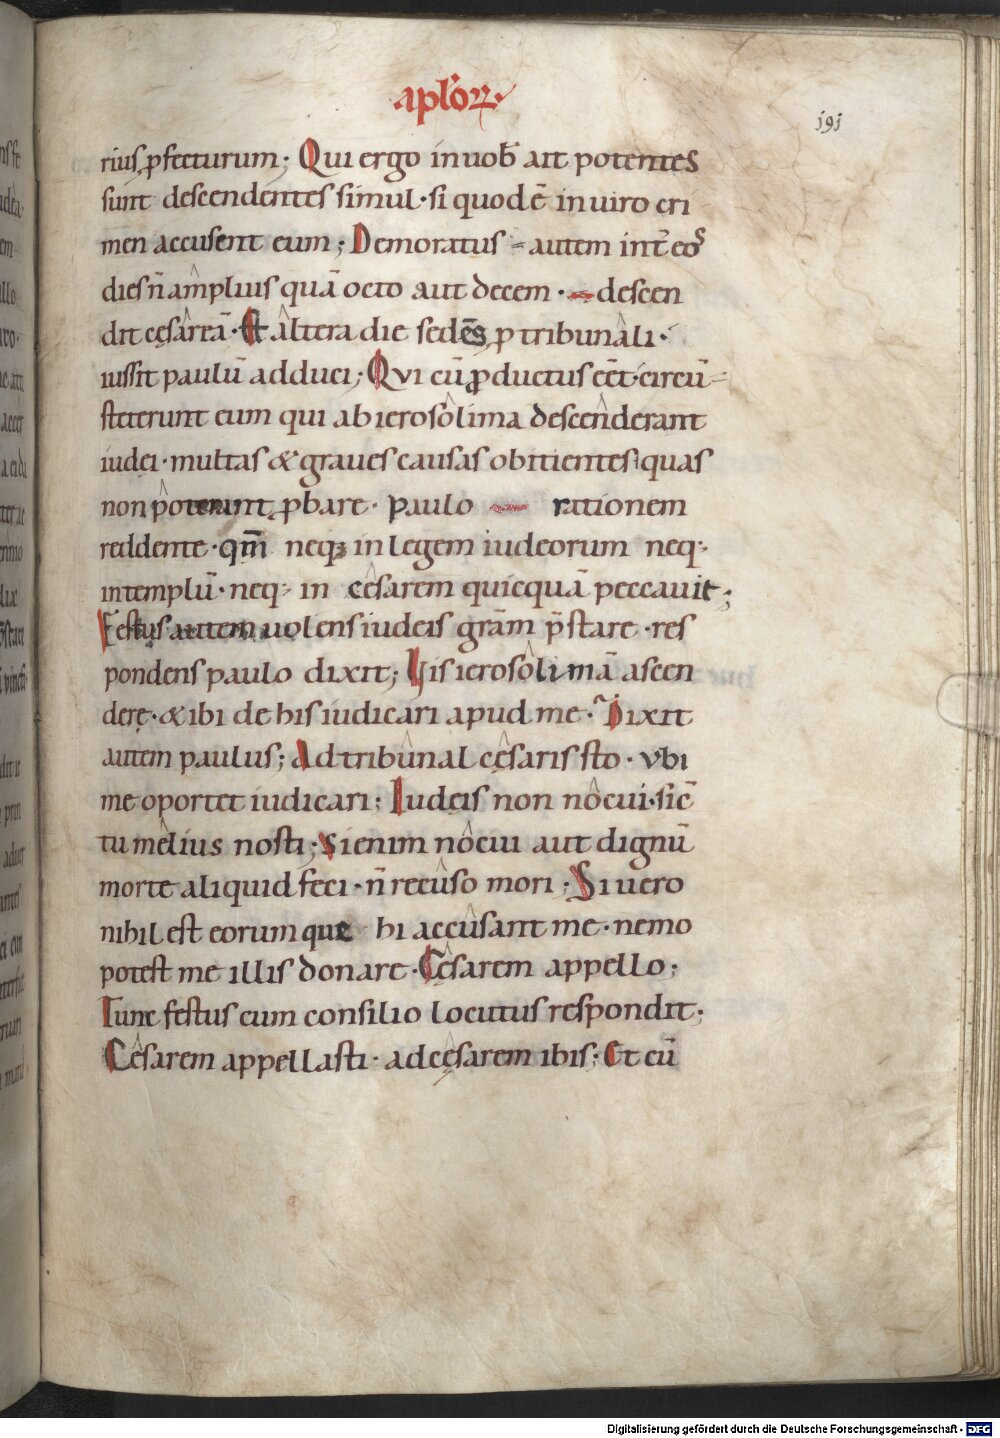 aplõꝝ·
j9j
rius, ꝓfecturum· Qui ergo in uob̅ ait potentes
sunt descendentes simul· si quod ē in uiro cri
men accusent eum; Demoratus = autem int̄ eos
dies n̄ amplius quā octo aut decem·— descen
dit cęsareā· Et altera die sedēs p tribunali·
iussit paulū adduci; Qui cū ꝓductus eēt· circū=
steterunt eum qui ab ierosolima descenderant
iudei· multas & graues causas obitientes quas
non poterunt ꝓbare· paulo — rationem
reddente· qm̄ neq; in legem iudeorum neq·
in templū· neq· in cesarem quicquā peccauit;
Festus autem uolens iudeis grām p̄stare· res
pondens paulo dixit; Vis ierosolimā ascen
derę· & ibi de his iudicari apud me· Dixit
autem paulus; Ad tribunal cęsaris sto· vbi
me oportet iudicari; Iudeis non nocui· sic̄
tu melius nosti; Si enim nociu aut dignū
morte aliquid feci· n̄ recuso mori; Si uero
nihil est eorum que hi accusant me· nemo
potest me illis donare· Cęsarem appello;
Tunc festus cum consilio locutus respondit·
Cesarem appellasti· ad cęsarem ibis; Et cū
Digitalisierung gefördert durch die Deutsche Forschungsgemeinschaft - DFG